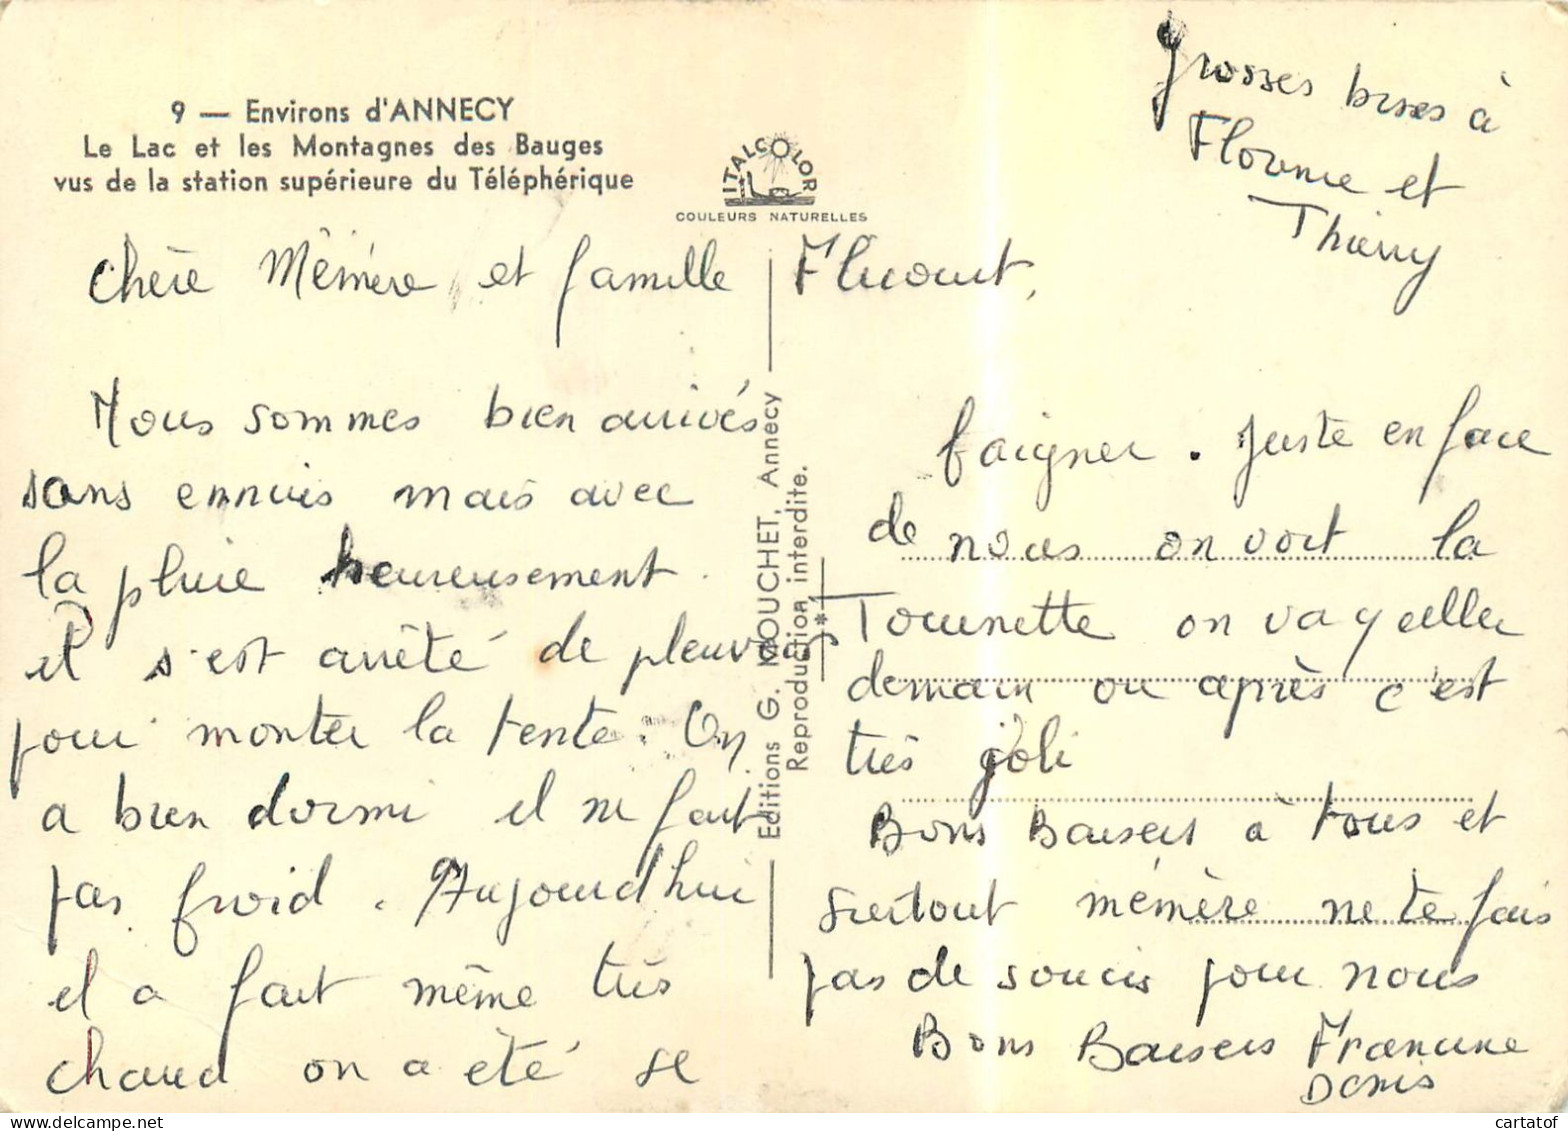 9 — Environs d'ANNECY
Le Lac et les Montagnes des Bauges
vus de la station supérieure du Téléphérique
ITALCOLOR
COULEURS NATURELLES
grosses bises à
Florence et
Thierry
Chère Mémère et famille
Nous sommes bien arrivés
sans ennuis mais avec
la pluie heureusement
il s'est arrêté de pleuvoir
pour monter la tente. On
a bien dormi il ne fait
pas froid. Aujourd'hui
il a fait même très
chaud on a été se
Editions G. MOUCHET, Annecy
Reproduction interdite.
baigner. Juste en face
de nous on voit la
Tournette on va y aller
demain ou après c'est
très joli
Bons Baisers à tous et
surtout mémère ne te fais
pas de soucis pour nous
Bons Baisers Francine
Denis
cartatof